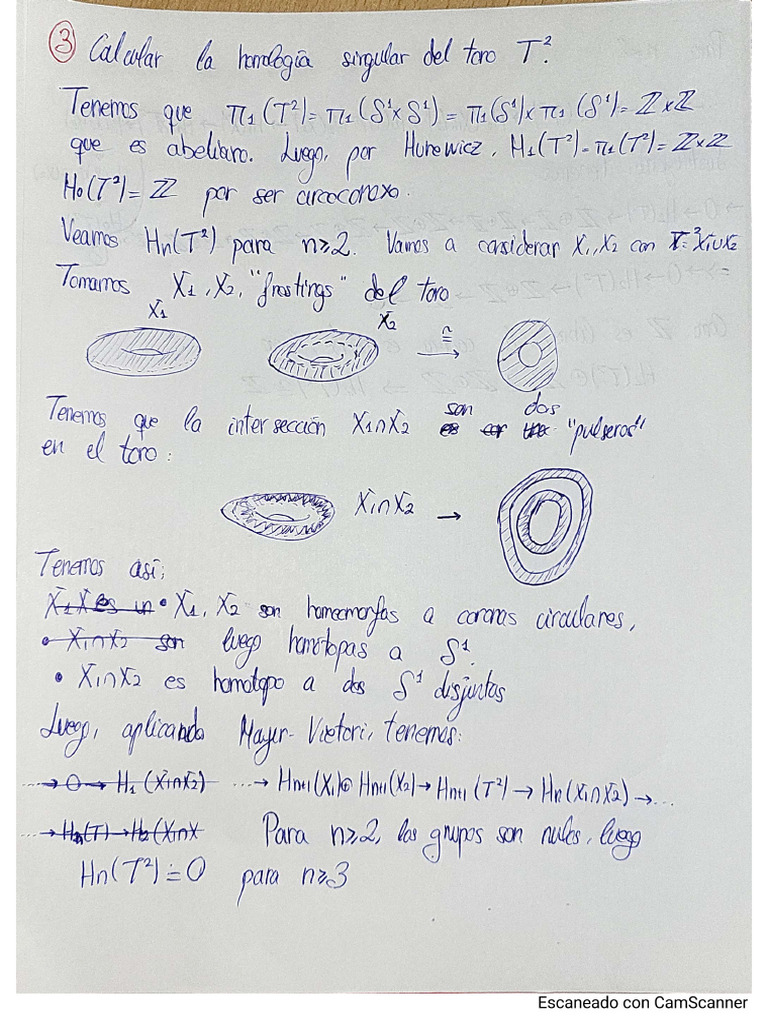 ③ Calcular la homología singular del toro T².
Tenemos que π₁(T²) = π₁(S¹×S¹) = π₁(S¹)×π₁(S¹) = ℤ×ℤ
que es abeliano. Luego, por Hurewicz, H₁(T²) = π₁(T²) = ℤ×ℤ
H₀(T²) = ℤ por ser arcoconexo.
Veamos Hn(T²) para n≥2. Vamos a considerar X₁, X₂ con X = X₁∪X₂
Tomamos X₁, X₂, "frostings" del toro
X₁ X₂ ≅
Tenemos que la intersección X₁∩X₂ son dos "pulseras"
en el toro:
X₁∩X₂ →
Tenemos así:
• X₁, X₂ son homeomorfas a coronas circulares,
luego homótopas a S¹.
• X₁∩X₂ es homótopo a dos S¹ disjuntas
Luego, aplicando Mayer-Vietori, tenemos:
→ 0 → H₁(X₁∩X₂) ...→ Hn+1(X₁)⊕Hn+1(X₂) → Hn+1(T²) → Hn(X₁∩X₂) → ...
Para n≥2, los grupos son nulos, luego
Hn(T²) = 0 para n≥3
Escaneado con CamScanner